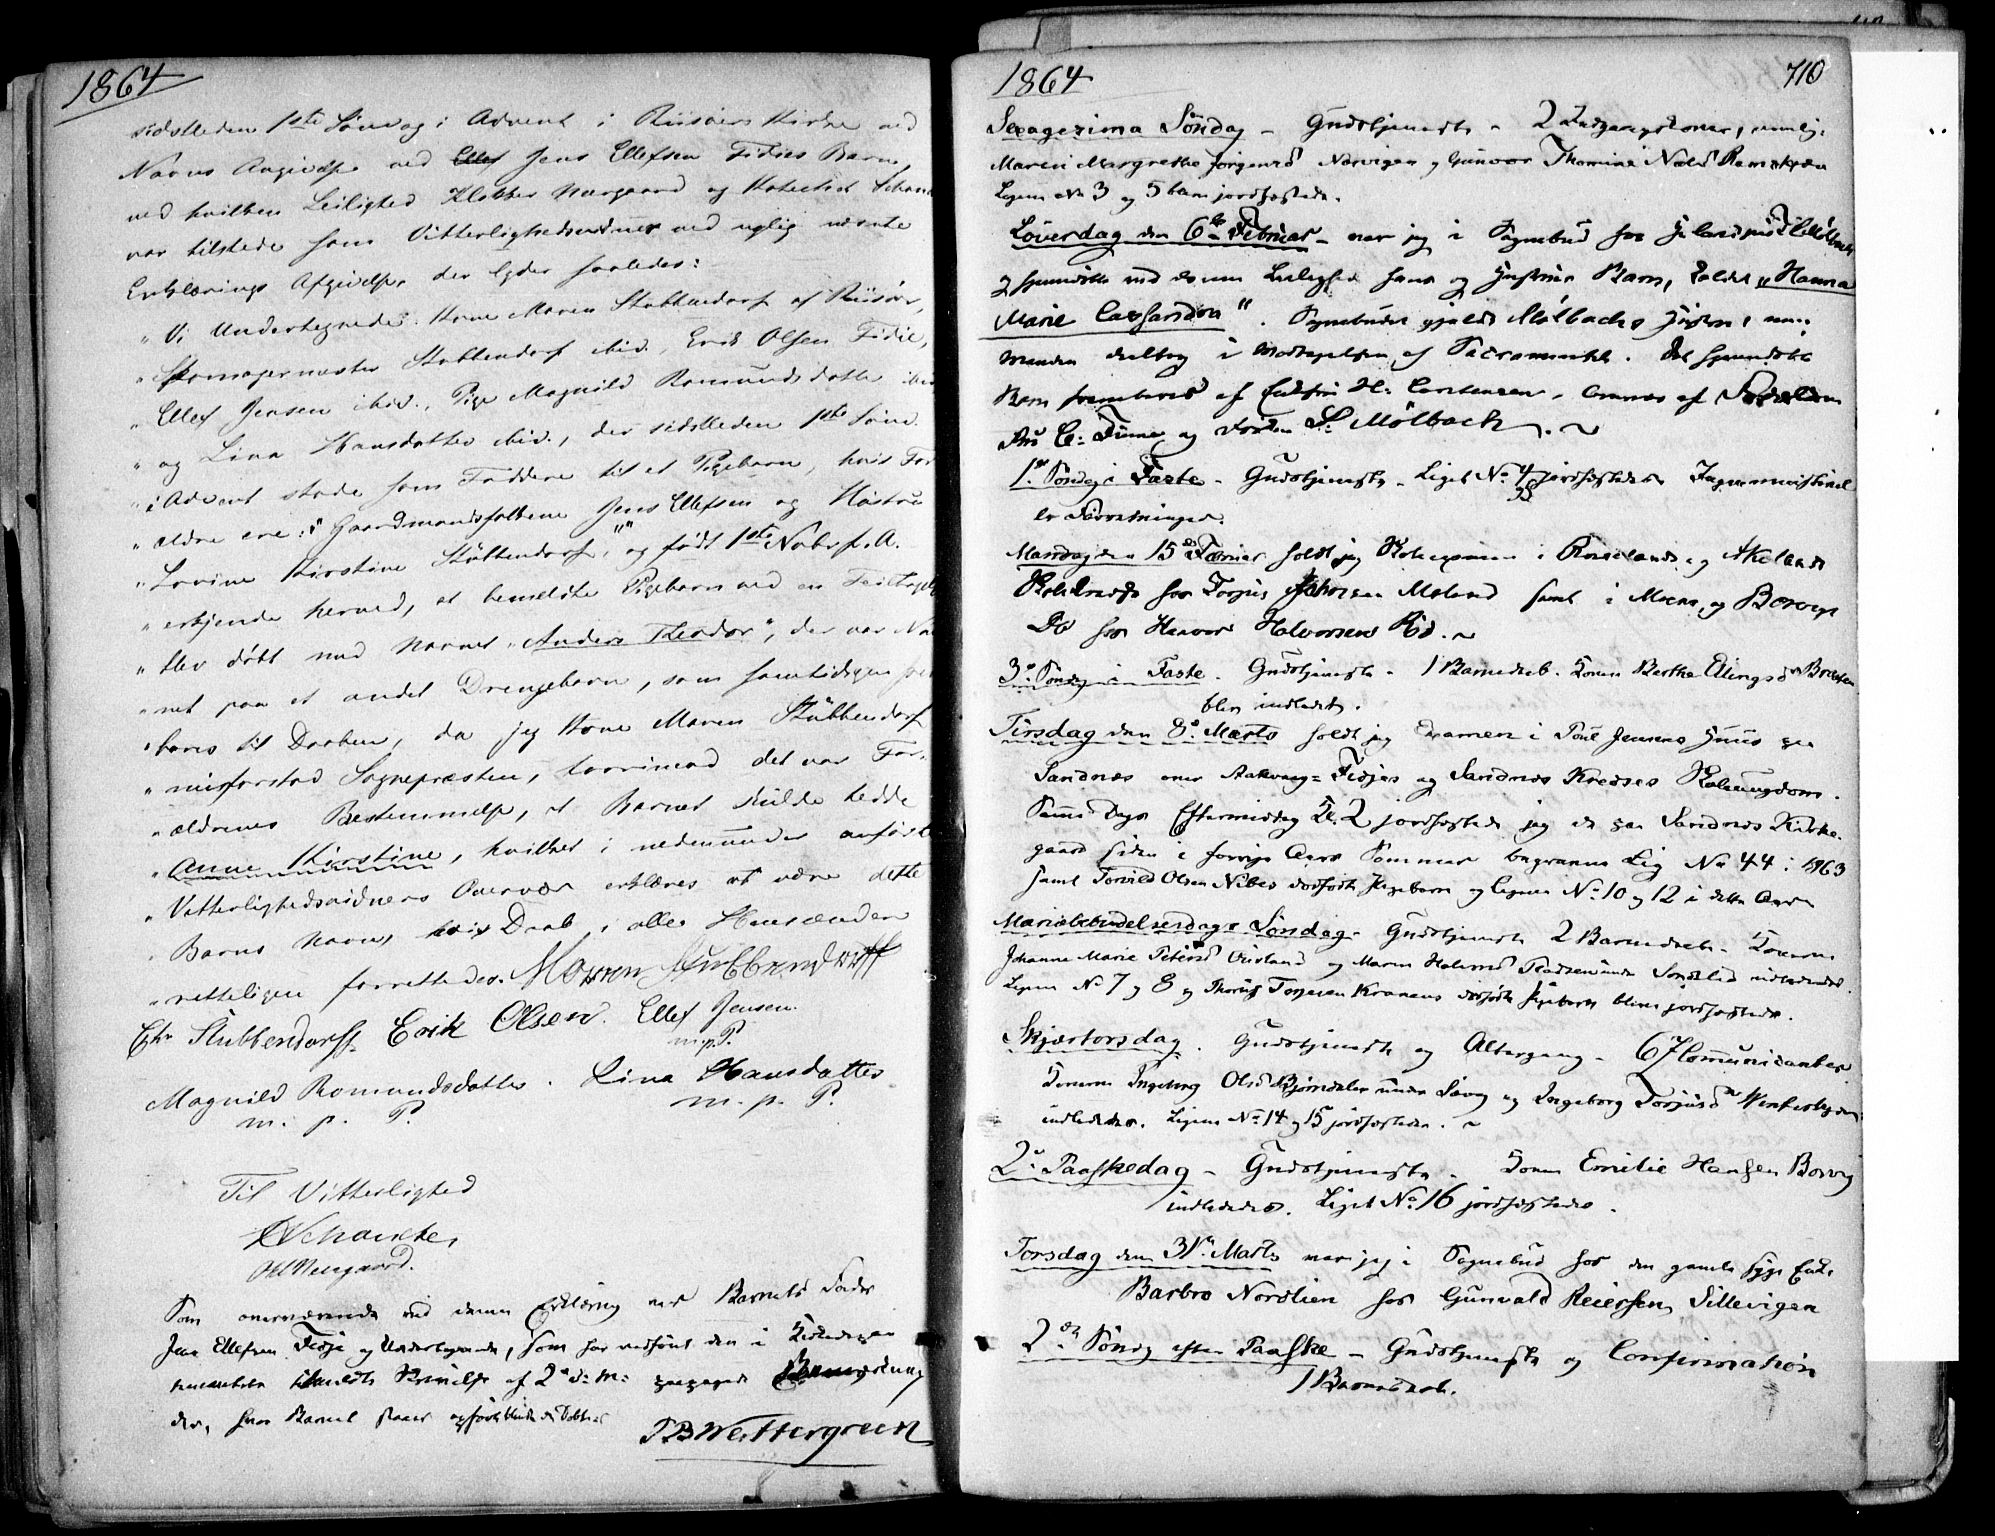 1864
sidstleden 1ste Søndag i Advent i Riisøers Kirke ved
Navns Angivelse ved Jens Ellefsen Fidies Barn,
ved hvilken Leilighed Klokker Neergaard og Kateket Schan
var tilstede som Vitterlighedsvidner ved nylig nævnte
Erklærings Afgivelse, der lyder saaledes:
"Vi Undertegnede: Kone Maren Stubbendorf af Riisøer,
"Skomagermester Stubbendorf ibid., Erik Olsen Fidie,
"Ellef Jensen ibid., Pige Magnild Romundsdatter ibid
"og Lina Hansdatter ibid., der sidstleden 1ste Sønd.
"i Advent stode som Faddere til et Pigebarn, hvis For
"ældre ere: "Gaardmandsfolkene Jens Ellefsen og Hustru
"Lovine Kirstine Stubbendorf," og født 1ste Novbr. f. A.
"erkjende herved, at bemeldte Pigebarn ved en Feiltagelse
"blev døbt med Navnet "Anders Theodor", der var Nav
"net paa et andet Drengebarn, som samtidigen frem
"bares til Daaben, da jeg Kone Maren Stubbendorf
"misforstod Sognepræsten, hvorimod det var For-
"ældrenes Bestemmelse, at Barnet skulde hedde
"Anne Kirstine, hvilket i nedenunder anførte
"Vitterlighedsvidners Overvær erklæres at være dette
"Barns Navn, hvis Daab i alle Henseender
"retteligen forrettedes. Maren Stubbendorff
Chr Stubbendorff. Erik Olsen. Ellef Jensen.
m. p. P.
Magnild Romundsdatter. Lina Hansdatter
m. p. P. m. p. P.
Til Vitterlighed
Schancke,
Neergaard.
Som overværende ved denne Erklæring var Barnets Fader
Jens Ellefsen Fidje og Undertegnede, som har vedført den i Kirkebogen
af 2den d: M:
der, hvor Barnet staaer opført blandt de Døbte
Wettergreen
1864 710
Sexagesima Søndag - Gudstjeneste - 2 Indgangskoner, nemlig:
Maren Margrethe Jørgensd Narvigen og Gunvor Thomine Nilsd
Ligene No 3 og 5 bleve jordfæstede.
Løverdag den 6te Februar - var jeg i Sognebud hos
og hjemdøbte ved samme Leilighed hans og Hustrues Barn, kaldet "Hanna
Marie Cassandra". Sognebudet gjaldt Mølbachs Hustru,
Manden deeltog i Modtagelsen af Sacramentet. Det hjemdøbte
Barn frembares af H: Carstensen,
Fru C: Finne og S: Mølbach.
1ste Søndag i Faste - Gudstjeneste - Liget No 4 jordfæstedes. Ingen ministeriel
le Forretninger.
Mandag den 15de Februar holdt jeg i Roselands og Akelands
Kredse hos Torjus Moland samt i Moens og Borvigs
Do hos Haavor Halvorsen Rød.
3die Søndag i Faste. Gudstjeneste - 1 Barnedaab. Konen Berthe Ellingsd Braaten
blev indledet.
Tirsdag den 8de Marts holdt jeg Examen i Poul Jensens Huus paa
Sandnæs over Aakvaag= Fidjes og Sandnæs Kredses Skoleungdom.
Samme Dags Eftermiddag Kl. 2 jordfæstede jeg de paa Sandnæs Kirke-
gaard siden i forrige Aars Sommer begravne Lig No 44 i 1863
samt Torvild Olsen Nibes dødfødte Pigebarn og Ligene No 10 og 12 i dette Aar.
Mariæ Bebudelsesdags Søndag - Gudstjeneste 2 Barnedaab - Konerne
Johanne Marie Petersd og Maren Halvorsd under Søndeled indledede.
Ligene No 7 og 8 og Torjesen Kranens dødfødte Pigebarn bleve jordfæstede.
Skjærtorsdag. Gudstjeneste og Altergang - 67 Communicanter.
Konerne Ingeborg Olsd Bjørndalen under Savig og Ingeborg Torjusd Vinterthun
indlededes. Ligene No 14 og 15 jordfæstedes.
2den Paaskedag - Gudstjeneste - Konen Emilie Hansen Borvig
indlededes. Liget No 16 jordfæstedes.
Torsdag den 31te Marts var jeg i Sognebud hos den gamle syge Enke
Barbro Nordlien hos Gunvald Reiersen, Sillevigen
2den Søndag efter Paaske - Gudstjeneste og Confirmation
1 Barnedaab.